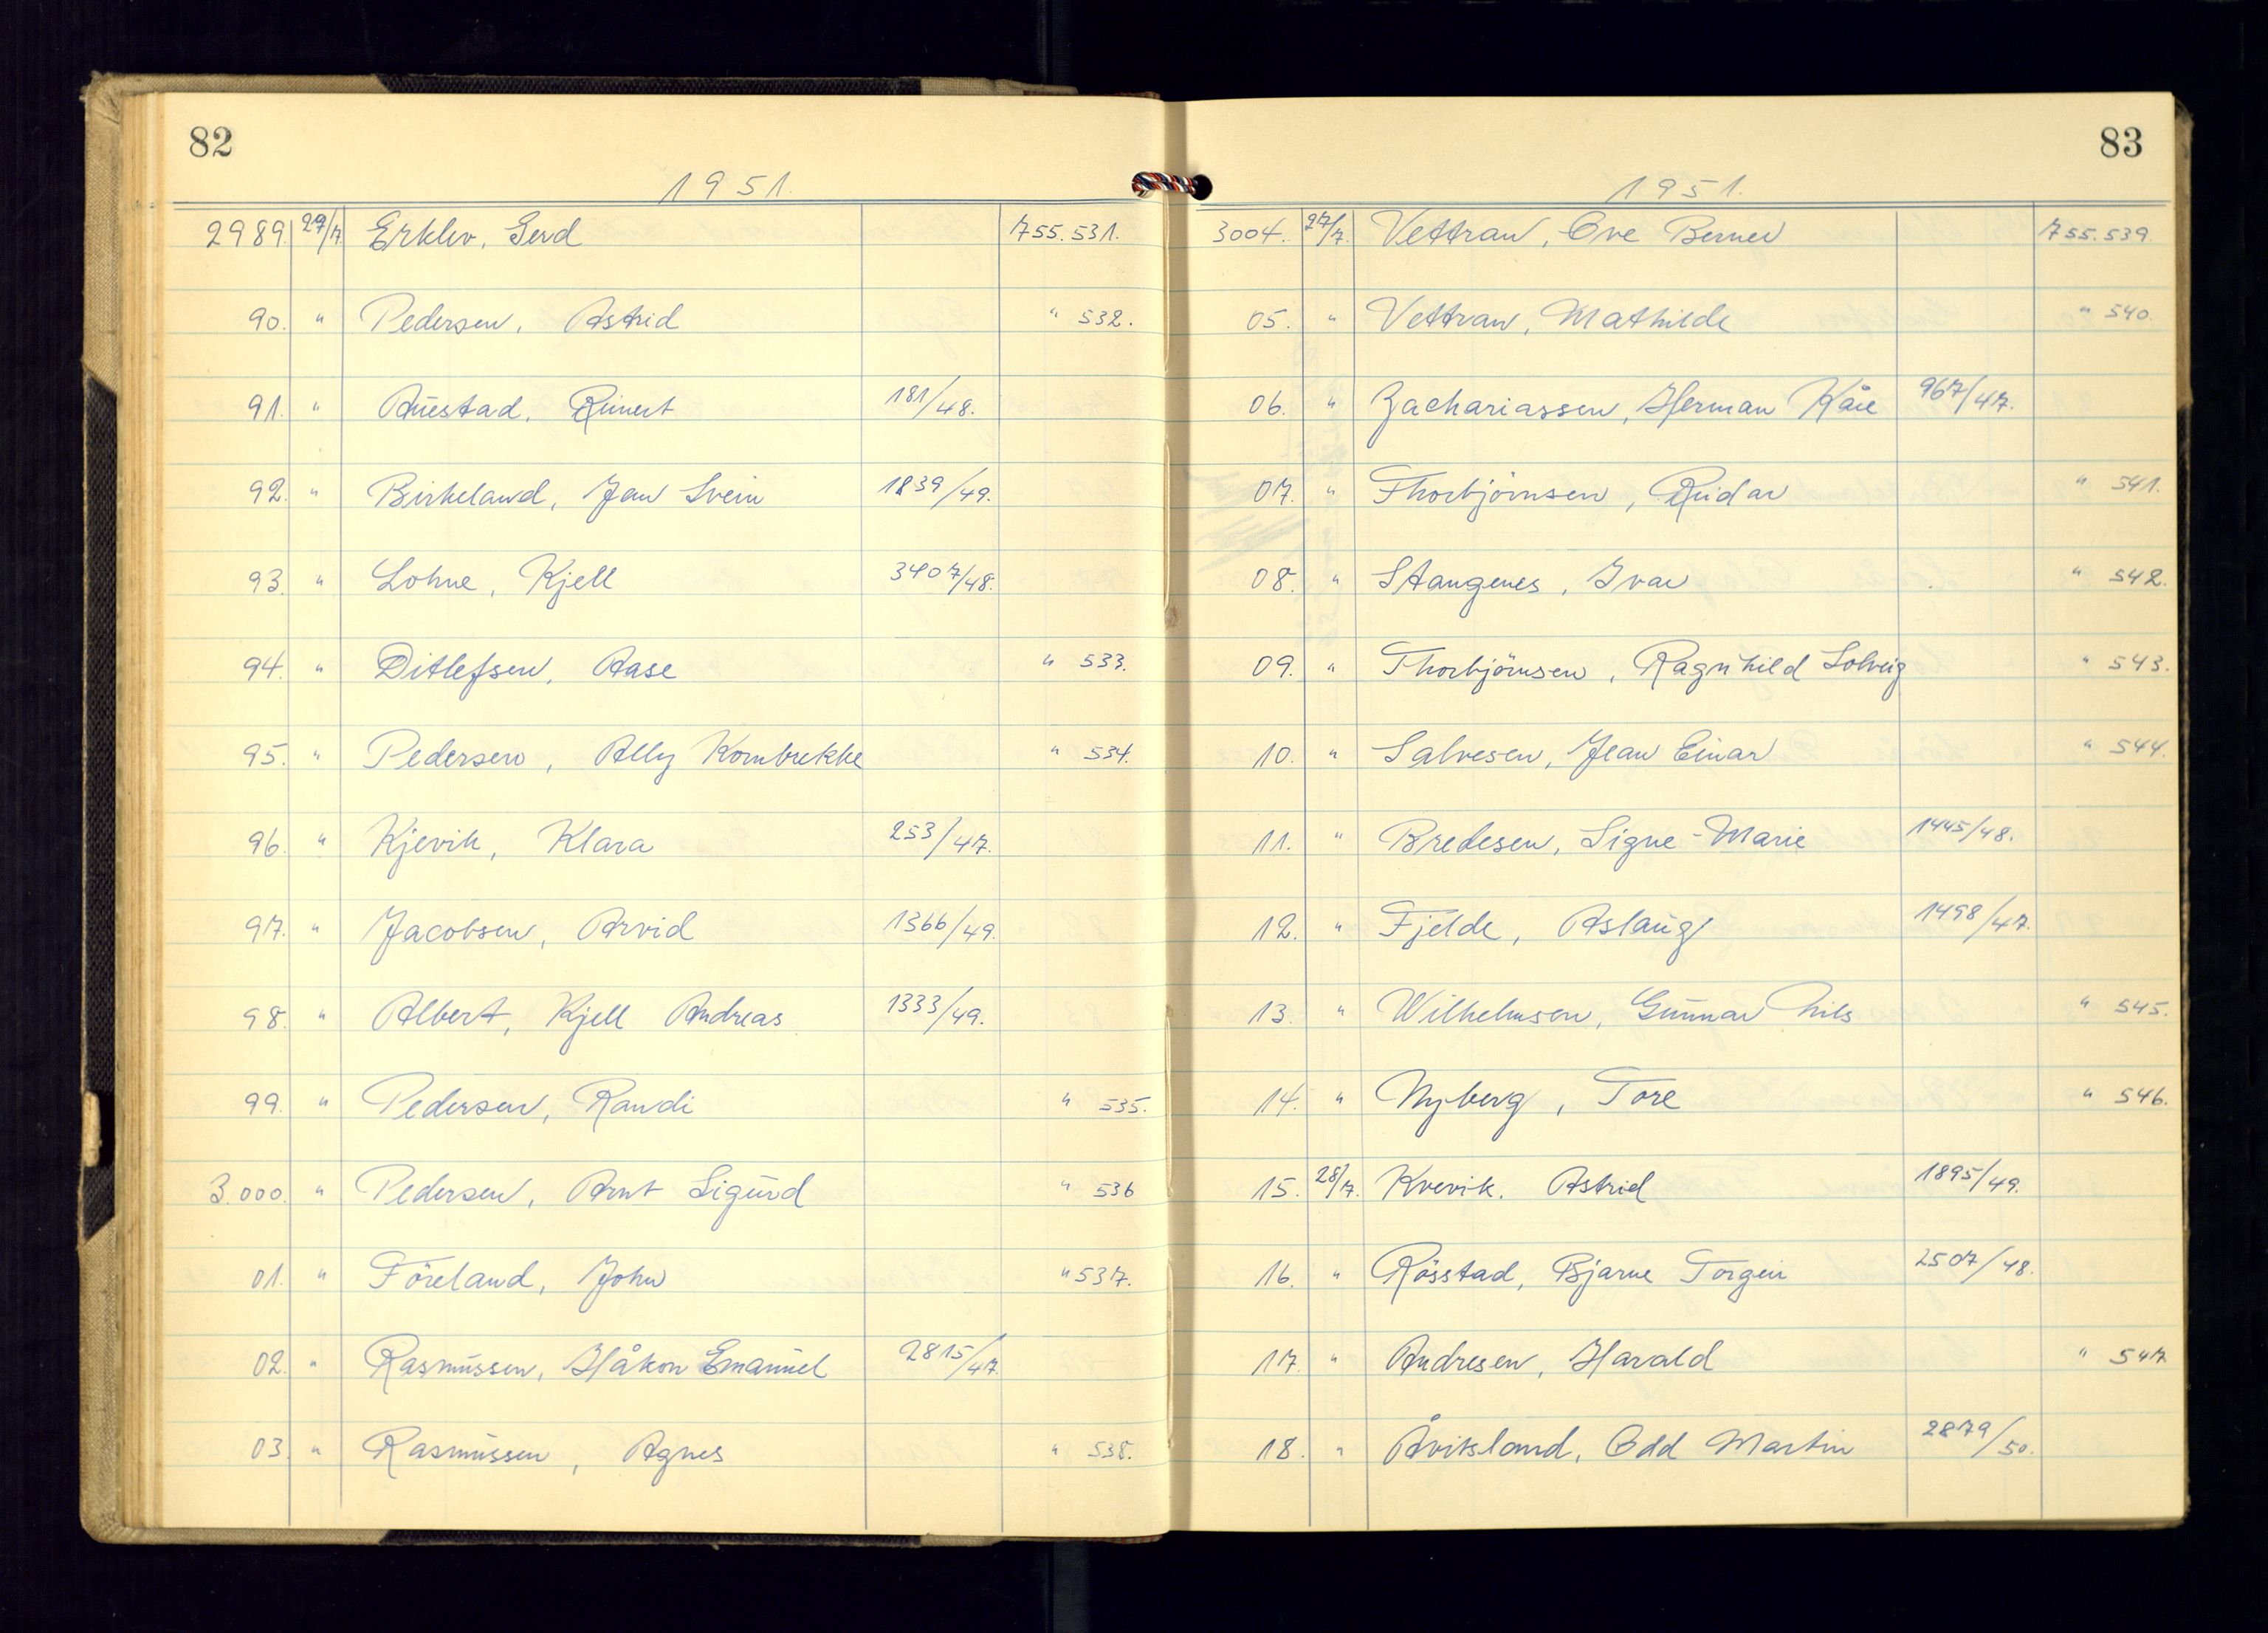 82
1951.
2989. 27/7. Erklev, Gerd 755.531.
90. " Pedersen, Astrid " 532.
91. " Auestad, Reinert 181/48.
92. " Birkeland, Jan Svein 1839/49.
93. " Lohne, Kjell 3407/48.
94. " Ditlefsen, Aase " 533.
95. " Pedersen, Ally Kornbrekke " 534.
96. " Kjevik, Klara 253/47.
97. " Jacobsen, Arvid 1366/49.
98. " Albert, Kjell Andreas 1333/49.
99. " Pedersen, Randi " 535.
3.000. " Pedersen, Arnt Sigurd " 536
01. " Föreland, John " 537.
02. " Rasmussen, Håkon Emanuel 2815/47.
03. " Rasmussen, Agnes " 538.
83
1951.
3004. 27/7. Vettran, Ove Berner 755.539.
05. " Vettran, Mathilde " 540.
06. " Zachariassen, Herman Kåre 967/47.
07. " Thorbjörnsen, Reidar " 541.
08. " Stangenes, Ivar " 542.
09. " Thorbjörnsen, Ragnhild Solveig " 543.
10. " Salvesen, Jean Einar " 544.
11. " Bredesen, Signe-Marie 1445/48.
12. " Fjelde, Aslaug 1498/47.
13. " Wilhelmsen, Gunnar Nils " 545.
14. " Nyberg, Tore " 546.
15. 28/7. Kvevik. Astrid 1895/49.
16. " Rösstad, Bjarne Torgeir 2507/48.
17. " Andresen, Harald " 547
18. " Åvitsland, Odd Martin 2879/50.